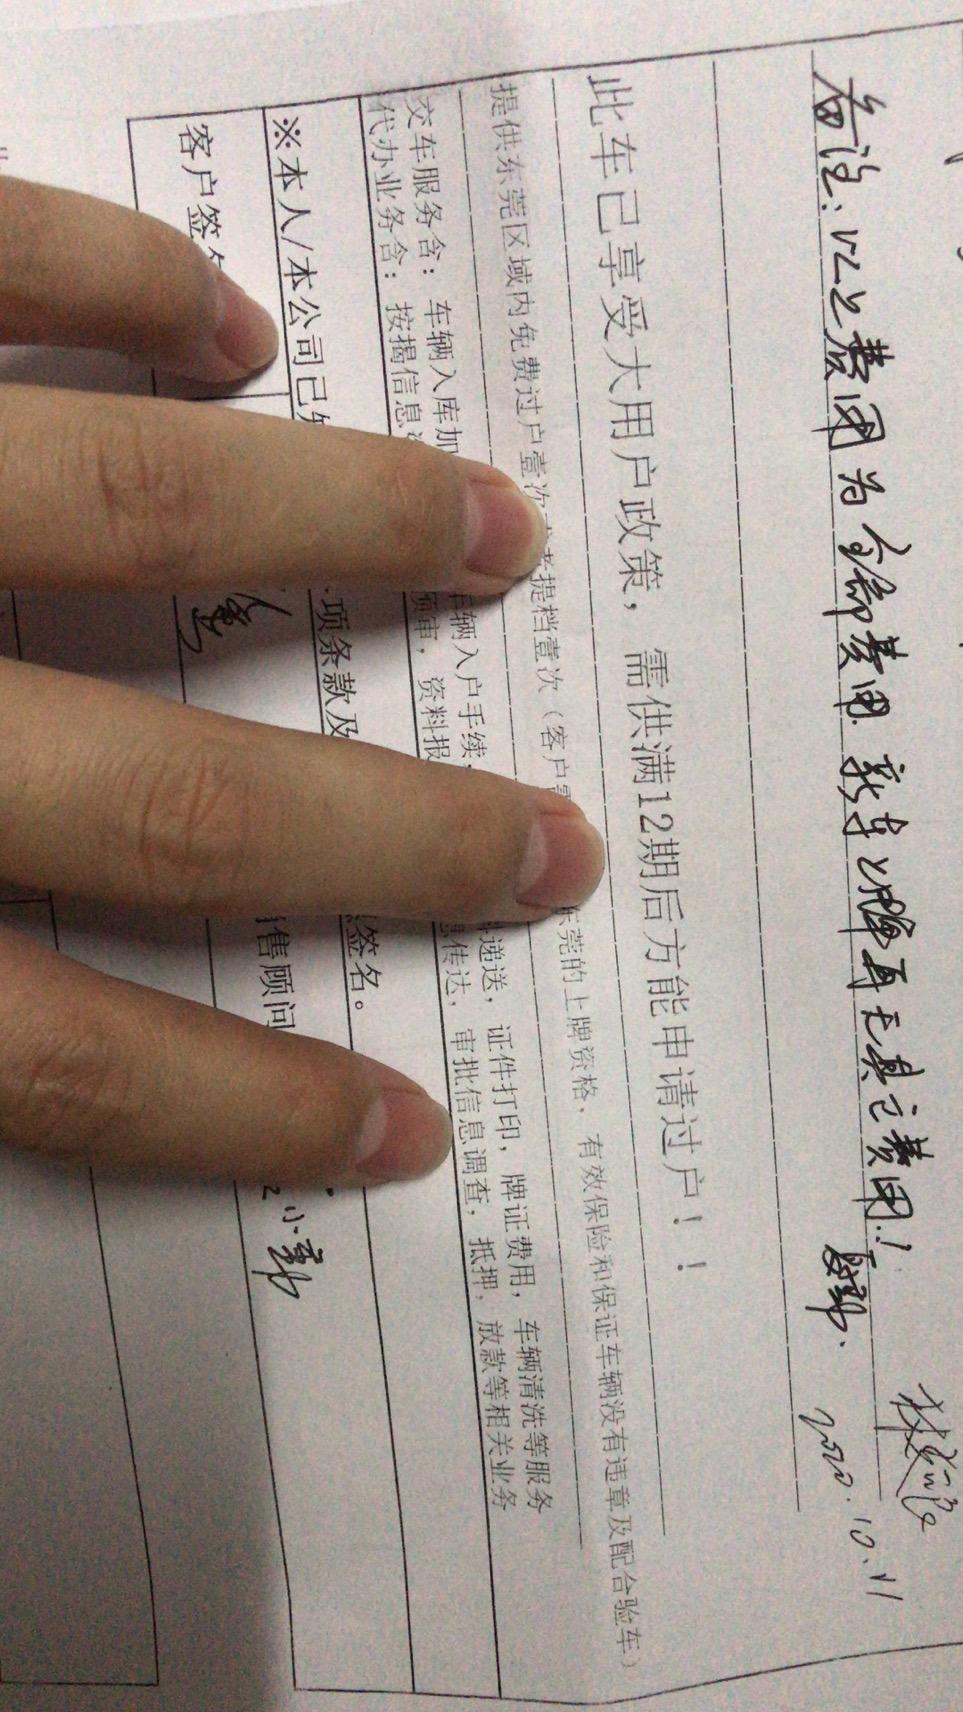 备注：以上费用为全部费用. 新车上牌再无其它费用.!
2020.10.11
此车已享受大用户政策，需供满12期后方能申请过户！！
提供东莞区域内免费过户壹次 提档壹次（客户 东莞的上牌资格，有效保险和保证车辆没有违章及配合验车）
交车服务含：车辆入库加 车辆入户手续， 递送，证件打印，牌证费用，车辆清洗等服务
代办业务含：按揭信息 预审，资料报 传达，审批信息调查，抵押，放款等相关业务
※本人/本公司已 项条款及 签名。
客户签 售顾问